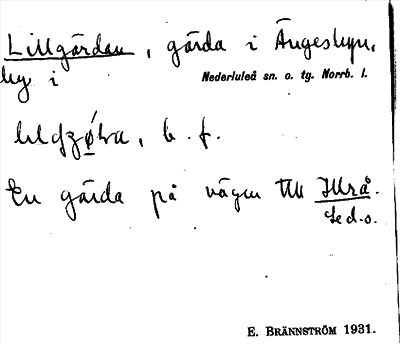 Lillgärdan, gärda i Ängesbyn,
by i Nederluleå sn. o. tg. Norrb. l.
b. f.
En gärda på vägen till
Se d.o.
E. BRÄNNSTRÖM 1931.